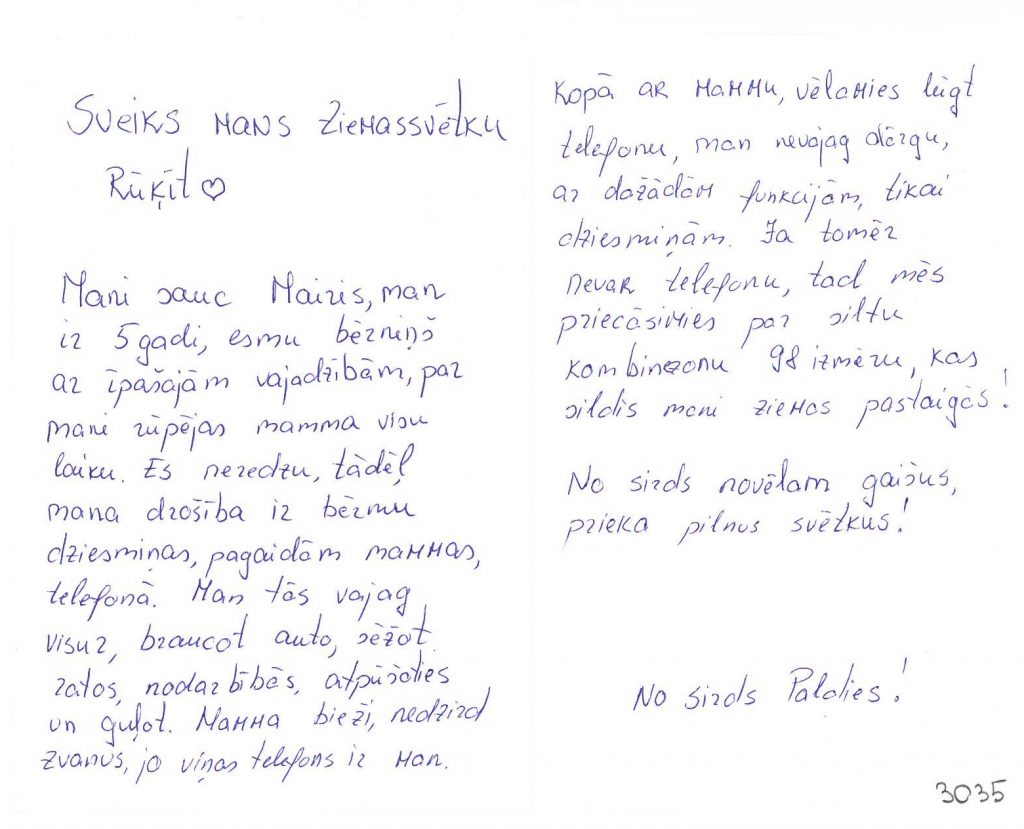 Sveiks mans Ziemassvētku
Rūķīt ♡
Mani sauc Mairis, man
ir 5 gadi, esmu bērniņš
ar īpašajām vajadzībām, par
mani rūpējas mamma visu
laiku. Es neredzu, tādēļ
mana drošība ir bērnu
dziesmiņas, pagaidām mammas,
telefonā. Man tās vajag
visur, braucot auto, sēžot
ratos, nodarbībās, atpūšoties
un guļot. Mamma bieži, nedzird
zvanus, jo viņas telefons ir man.
Kopā ar mammu, vēlamies lūgt
telefonu, man nevajag dārgu,
ar dažādām funkcijām, tikai
dziesmiņām. Ja tomēr
nevar telefonu, tad mēs
priecāsimies par siltu
kombinezonu 98 izmēru, kas
sildīs mani ziemas pastaigās!
No sirds novēlam gaišus,
prieka pilnus svētkus!
No sirds Paldies!
3035